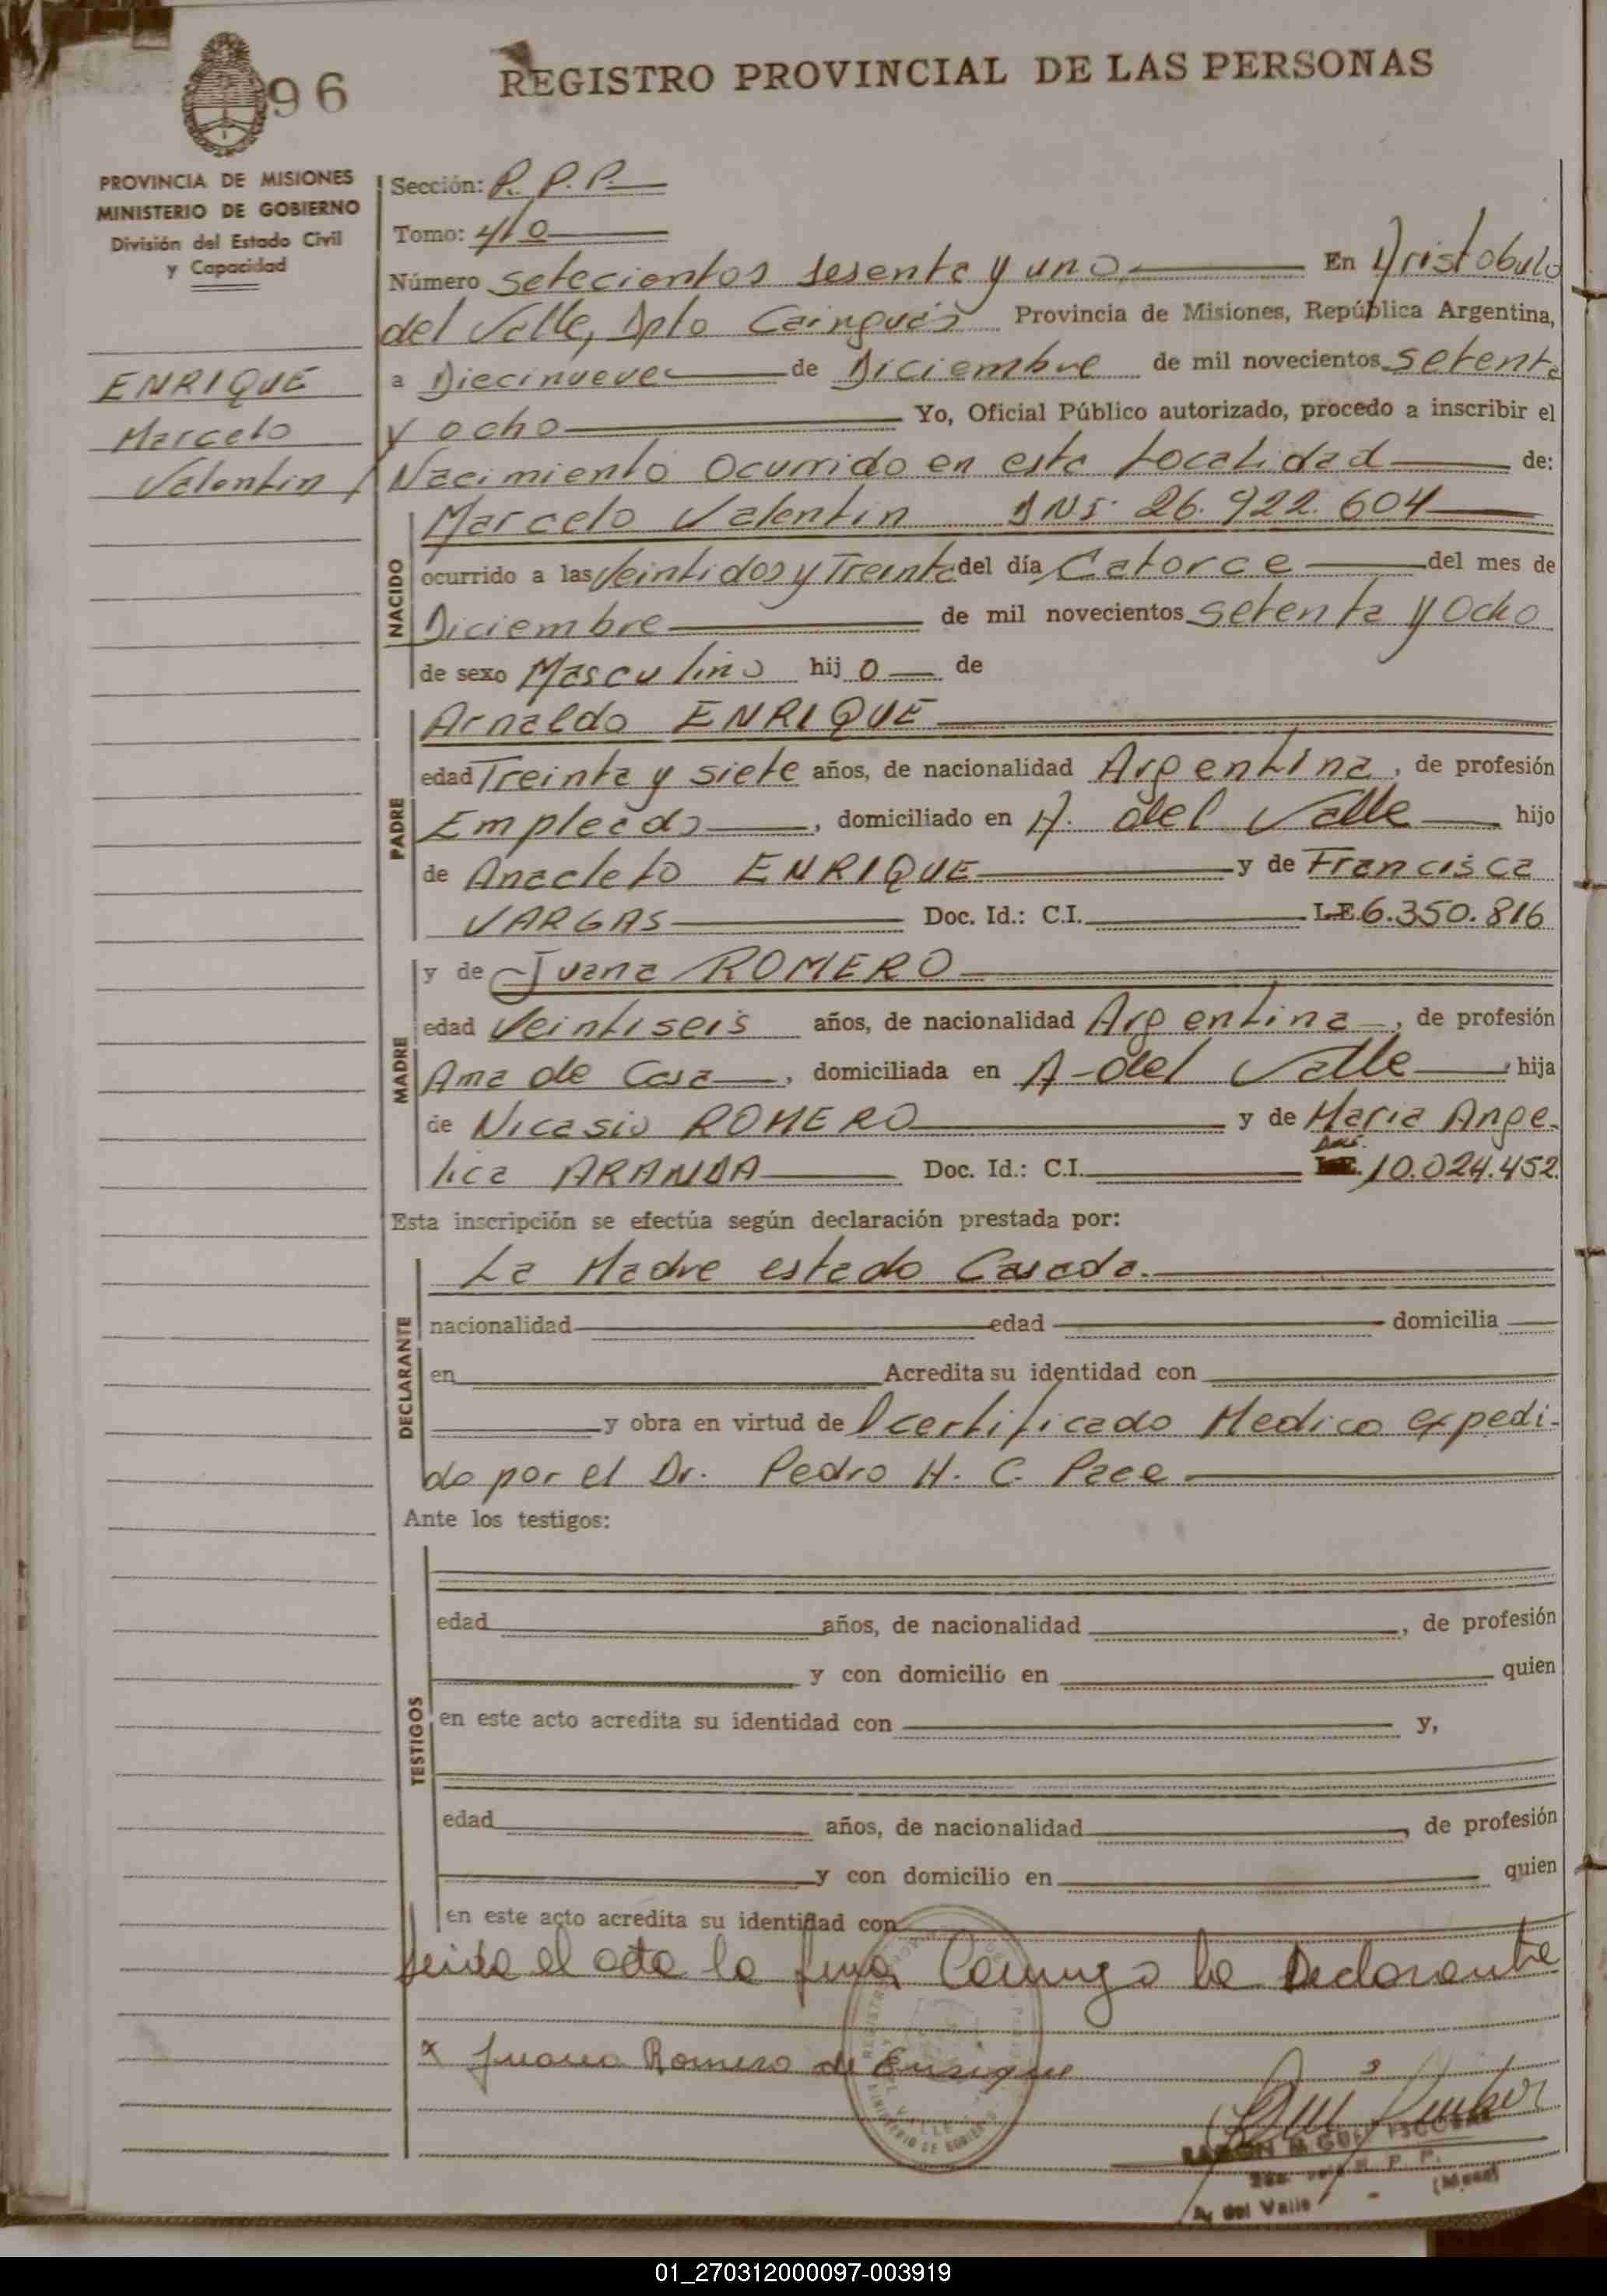 96
REGISTRO PROVINCIAL DE LAS PERSONAS
PROVINCIA DE MISIONES
MINISTERIO DE GOBIERNO
División del Estado Civil
y Capacidad
ENRIQUE
Marcelo
Valentin
Sección: R. P. P.
Tomo: 4/0
Número setecientos sesenta y uno. En Aristobulo
del Valle, Dpto Cainguás Provincia de Misiones, República Argentina,
a Diecinueve de Diciembre de mil novecientos setenta
y ocho Yo, Oficial Público autorizado, procedo a inscribir el
Nacimiento Ocurrido en esta Localidad de:
NACIDO
Marcelo Valentin DNI: 26.922.604
ocurrido a las Veintidos y Treinta del día Catorce del mes de
Diciembre de mil novecientos setenta y Ocho
de sexo Masculino hijo de
PADRE
Arnaldo ENRIQUE
edad Treinta y siete años, de nacionalidad Argentina, de profesión
Empleado, domiciliado en A. del Valle hijo
de Anacleto ENRIQUE y de Francisca
VARGAS Doc. Id.: C.I. L.E. 6.350.816
MADRE
y de Juana ROMERO
edad Veintiseis años, de nacionalidad Argentina, de profesión
Ama de Casa, domiciliada en A-del Valle hija
de Nicasio ROMERO y de Maria Ange-
lica ARANDA Doc. Id.: C.I. 10.024.452
Esta inscripción se efectúa según declaración prestada por:
DECLARANTE
La Madre estado Casada.
nacionalidad edad domicilia
en Acredita su identidad con
y obra en virtud del certificado Medico expedi-
do por el Dr. Pedro H. C. Pace
Ante los testigos:
TESTIGOS
edad años, de nacionalidad, de profesión
y con domicilio en quien
en este acto acredita su identidad con y,
edad años, de nacionalidad, de profesión
y con domicilio en quien
en este acto acredita su identidad con
leida el acta la firma Conmigo la Declarante
x Juana Romero de Enrique
RAMON MIGUEL ESCOBAR
R. P. P.
A. del Valle - (Mnes)
01_270312000097-003919